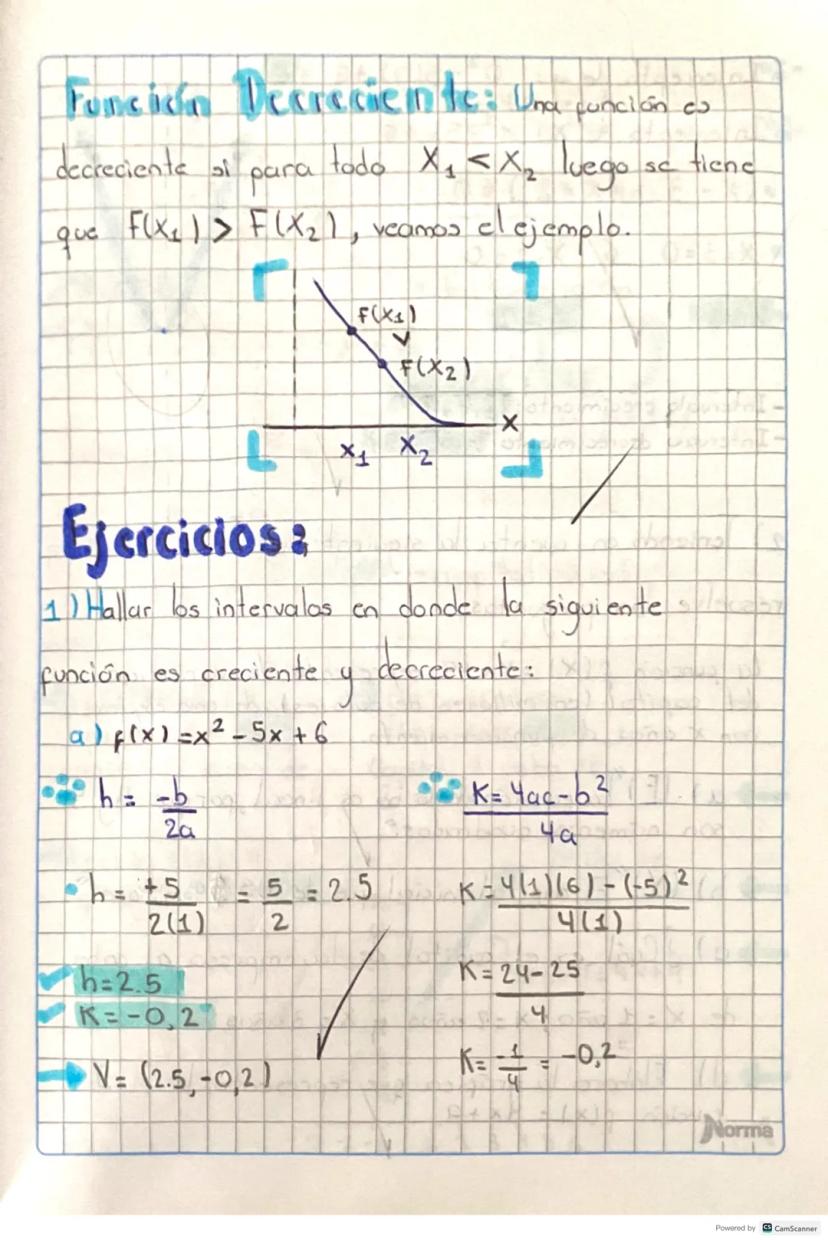 Función Decreciente: Una función es
decreciente si para todo X₁ < X₂ luego se tiene
que F(X₁) > F(X₂), veamos el ejemplo.
F(X₁)
V
F(X₂)
X
X₁ X₂
Ejercicios:
1) Hallar los intervalos en donde la siguiente
función es creciente y decreciente:
a) f(x) = x² - 5x + 6
h = -b/2a
K = 4ac - b²/4a
h = +5/2(1) = 5/2 = 2.5
K = 4(1)(6) - (-5)²/4(1)
h = 2.5
K = 24 - 25/4
K = -0,2
K = -1/4 = -0,2
V = (2.5, -0,2)
Norma
Powered by CS CamScanner